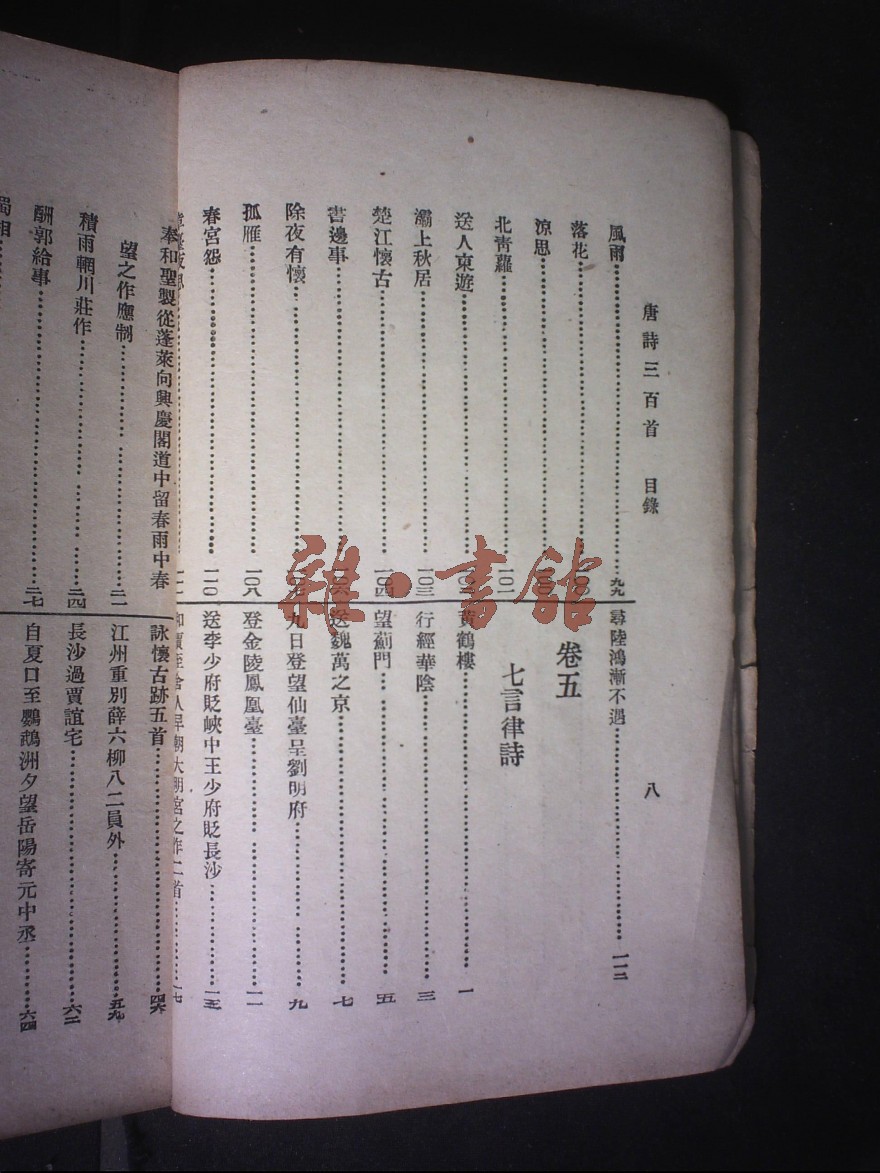 唐詩三百首 目錄 八
風雨……九九
落花……一〇〇
涼思……一〇〇
北青蘿……一〇一
送人東遊……一〇二
灞上秋居……一〇三
楚江懷古……一〇四
書邊事……一〇六
除夜有懷……一〇七
孤雁……一〇八
春宮怨……一一〇
夜思……一一一
尋陸鴻漸不遇……一一二
卷五
七言律詩
黃鶴樓……一
行經華陰……三
望薊門……五
送魏萬之京……七
九日登望仙臺呈劉明府……九
登金陵鳳凰臺……一一
送李少府貶峽中王少府貶長沙……一五
和賈至舍人早朝大明宮之作二首……一七
奉和聖製從蓬萊向興慶閣道中留春雨中春
望之作應制……二一
積雨輞川莊作……二四
酬郭給事……二七
蜀相……
詠懷古跡五首……四六
江州重別薛六柳八二員外……五九
長沙過賈誼宅……六二
自夏口至鸚鵡洲夕望岳陽寄元中丞……六四
雜·書館